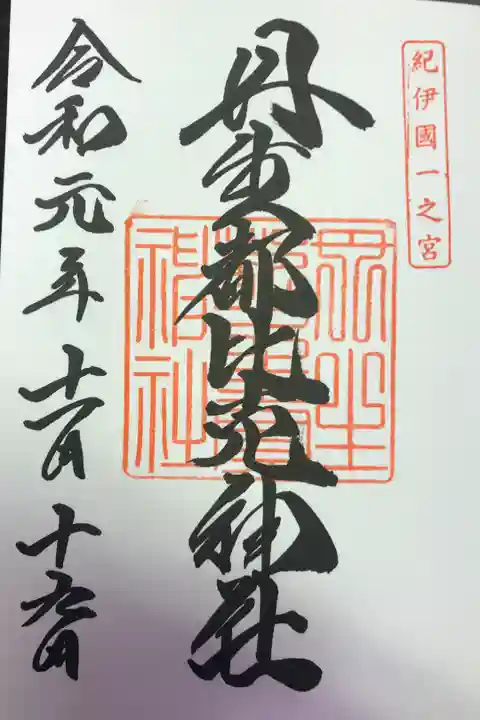 紀伊國一之宮
丹生都比売神社
令和元年十一月十九日